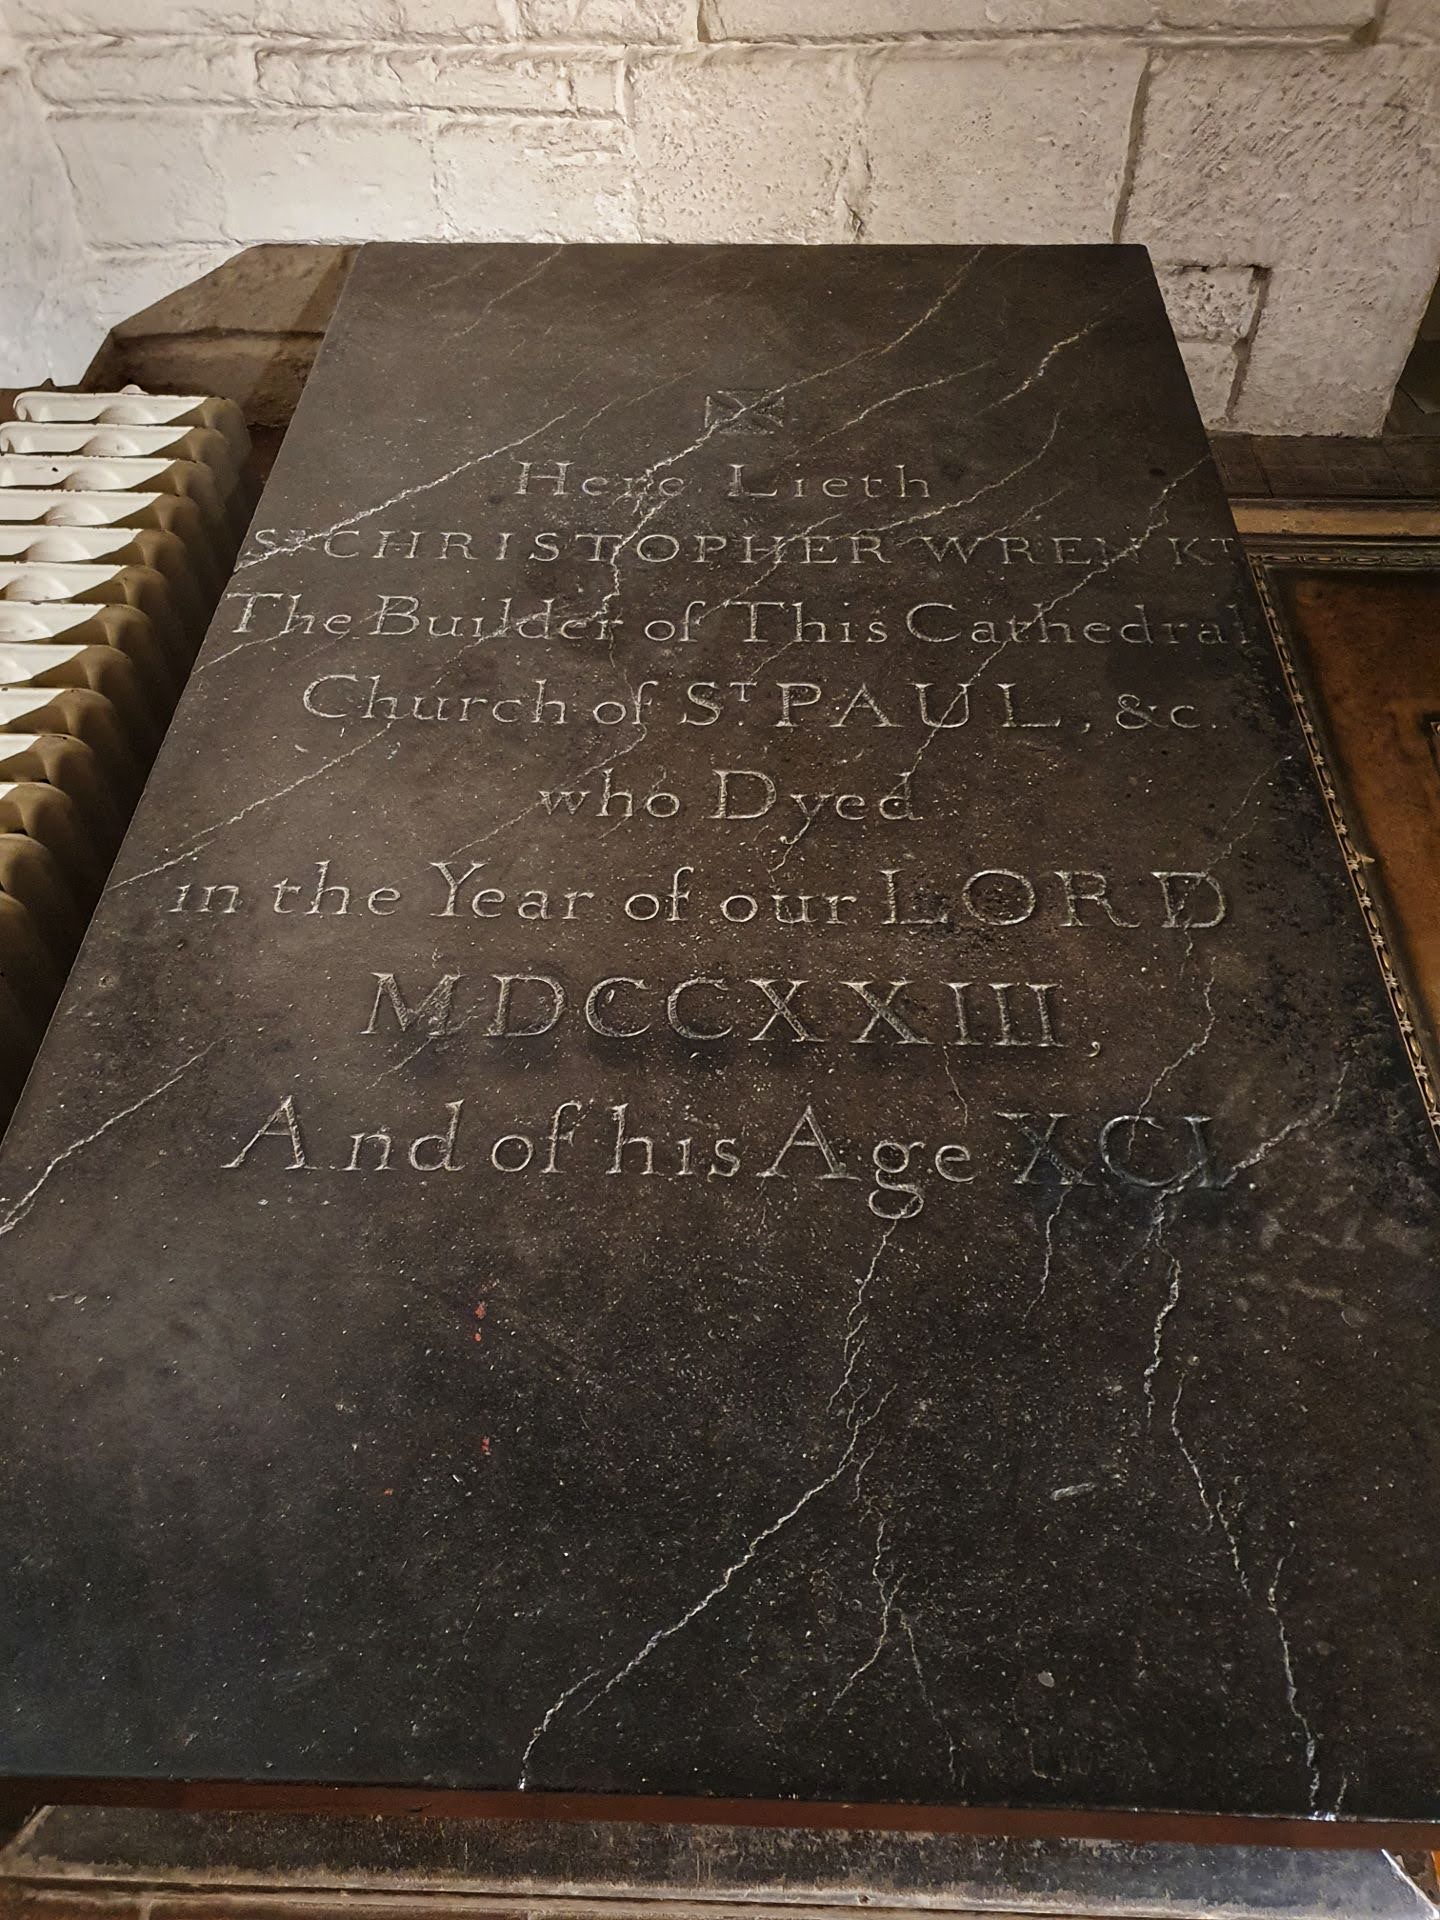 Here Lieth
SR CHRISTOPHER WREN KT
The Builder of This Cathedral
Church of ST. PAUL, &c.
who Dyed
in the Year of our LORD
MDCCXXIII,
And of his Age XCI.